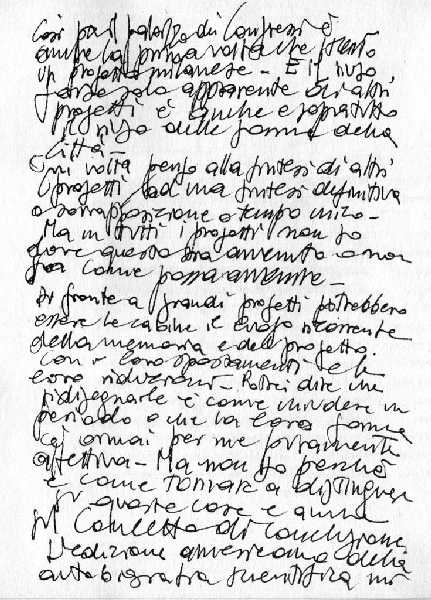 Così per il palazzo dei Congressi è
anche la prima volta che tento
un progetto milanese - E il riuso
forse solo apparente di altri
progetti è anche e soprattutto
il riuso delle forme della
città -
Ogni volta penso alla sintesi di altri
progetti ad una sintesi definitiva
o sovrapposizione o tempo unico -
Ma in tutti i progetti non so
dove questo sia avvenuto o non
so come possa avvenire -
Di fronte a grandi progetti potrebbero
essere le cabine il luogo ricorrente
della memoria e del progetto.
Con i loro spostamenti e le
loro riduzioni - Potrei dire che
ridisegnarle è come chiudere un
periodo o che la loro forma
è ormai per me puramente
affettiva - Ma non so perché
è come tornare a distinguere
queste cose e anche
il Concetto di conclusione
L'edizione americana della
autobiografia scientifica mi